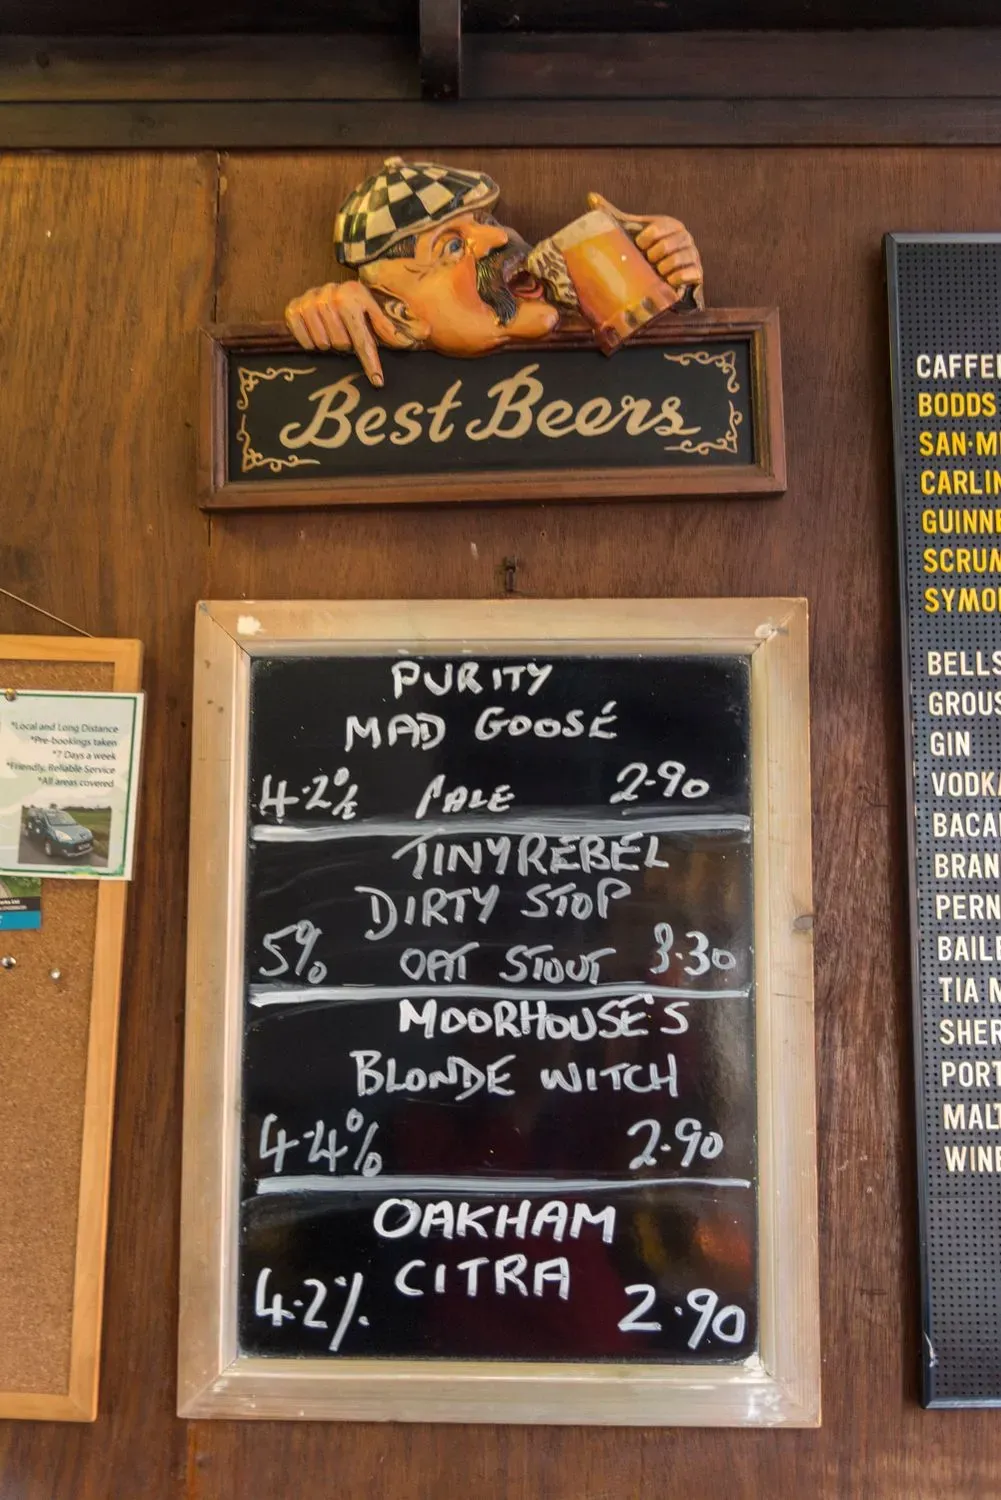 Best Beers
PURITY
MAD GOOSE
4.2% PALE 2.90
TINY REBEL
DIRTY STOP
5% OAT STOUT 3.30
MOORHOUSE'S
BLONDE WITCH
4.4% 2.90
OAKHAM
CITRA
4.2% 2.90
*Local and Long Distance
*Pre-bookings taken
*7 Days a week
*Friendly, Reliable Service
*All areas covered
CAFFE
BODDS
SAN-M
CARLIN
GUINN
SCRUM
SYMO
BELLS
GROUS
GIN
VODKA
BACA
BRAN
PERN
BAIL
TIA M
SHER
PORT
MAL
WINE